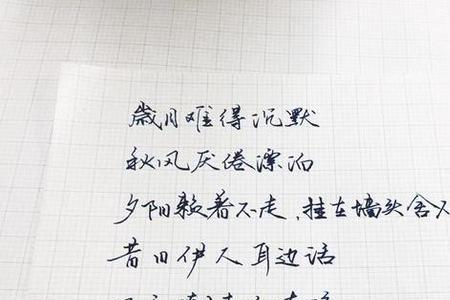 歲月难得沉默
秋风厌倦漂泊
夕阳赖著不走，挂在墙头舍不
昔日伊人耳边话